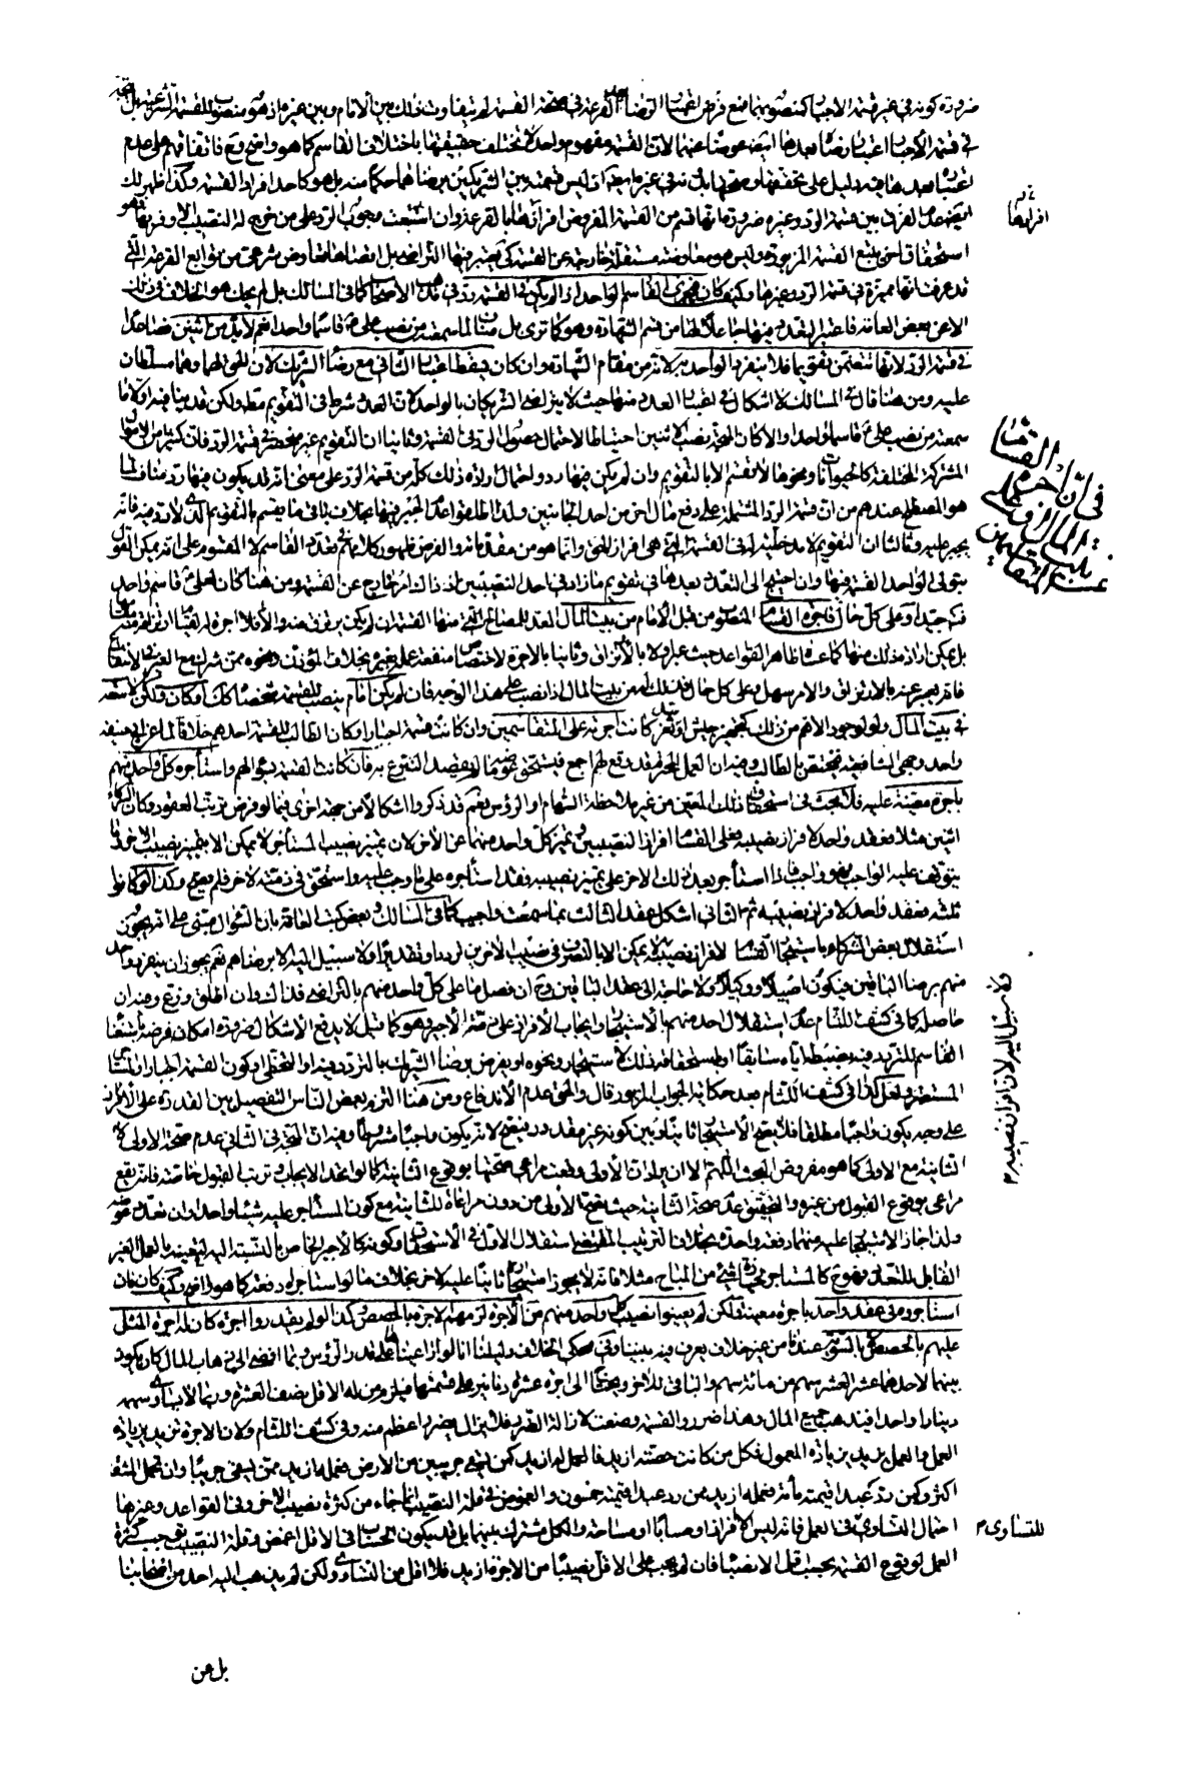 ضرورة كونه في غير قسمة الاجبار كمنصوبهما فمع فرض اعتبار الرضا بعد القرعة في هذه القسمة لم يتفاوت ذلك بين الامام وبين غيره اذ هو منصوب للقسمة الشرعية بل المتجه
في قسمة الاجبار اعتبار رضاه بعدها ايضا عوضا عنهما لان القسمة مفهوم واحد لا تختلف حقيقتها باختلاف القاسم كما هو واضح فاتفاقهم على عدم
اعتباره بعدها فيه دليل على تحققها وصحتها بدونه في غيره ان ليس قسمته بين الشريكين برضاهما حكما منه بل هو كاحد افراد القسمة وكذا ظهر لك
ايضا عدم الفرق بين قسمة الرد وغيره ضرورة انها قسم من القسمة المفروض افرازها بالقرعة وان استتبعت وجوب الرد على من خرج له النصيب الاوفر بها
استحقاق اخر يتبع القسمة المزبورة وليس هو معاوضة مستقلة خارجة عن القسمة كي يعتبر فيها التراضي بل اقتضاها تعاوض شرعي من توابع القرعة التي
قد عرفت انها مميزة في قسمة الرد وغيرها وكيف كان فيجزي القاسم الواحد اذا لم يكن في القسمة رد في الاصحاب كما في المسالك بل لم يحك هو الخلاف في ذلك
الا عن بعض العامة فاعتبر التعدد فيها جاعلا لها من قسم الشهادة وهو كما ترى بل من نصب علي قاسما واحدا نعم لا بد من اثنين فصاعدا
في قسمة الرد لانها تتضمن تقويما فلا ينفرد الواحد به لانه من مقام الشهادة وان كان يسقط اعتبار الثاني مع رضا الشريك لان الحق لهما وهما مسلطان
عليه ومن هنا قال في المسالك لا اشكال في اعتبار العدد منها حيث لا يتراضى الشريكان بالواحد لان العدد شرط في التقويم مطلقا ولكن قد يناقش اولا بما
سمعته من نصب علي قاسما واحدا والا كان المتجه نصب الاثنين احتياطا لاحتمال حصول الرد في القسمة وثانيا ان التقويم غير منحصر في قسمة الرد فان كثيرا من الاموال
المشتركة المختلفة كالحيوانات ونحوها لا تقسم الا بالتقويم وان لم يكن فيها رد واحتمال ارادة ذلك كله من قسمة الرد على معنى انه قد يكون فيها رد مناف لما
هو المصطلح عندهم من ان قسمة الرد المشتملة على دفع مال اخر من احد الجانبين ولذا اطلقوا عدم الجبر فيها بخلاف باقي ما يقسم بالتقويم الذي لا رد فيه فانه
يجبر عليه وثالثا ان التقويم لا مدخلية له في القسمة التي هي افراز الحق وانما هو من مقدماته والفرض ظهور كلامهم في تعدد القاسم لا المقوم على انه يمكن القول
بتولي الواحد القسمة فيها وان احتيج الى التعدد بعدها في تقويم ما زاد في احد النصيبين اذ ذاك امر خارج عن القسمة ومن هنا كان لعلي قاسم واحد
فتدبر جيدا وعلى كل حال فاجرة القسام المنصوب من قبل الامام من بيت المال المعد للمصالح التي منها القسمة ان لم يكن يرتزق منه والا فلا اجرة له
بل يمكن ارادة ذلك منها كما عساه ظاهر القواعد حيث عبر اولا بالارتزاق وثانيا بالاجرة لاختصاص منفعة عمله بغيره بخلاف المؤذن ونحوه ممن شرك مع الغير في الانتفاع
فانه يعبر عنه بالارتزاق والامر سهل وعلى كل حال فذلك له من بيت المال اذا نصب على هذا الوجه فان لم يكن امام ينصب للقسمة شخصا كذلك او كان ولكن لا سعة
في بيت المال ولو لوجود الاهم من ذلك كتجهيز جيش او سد ثغر كانت اجرته على المتقاسمين وان كانت قسمة اجبار او كان الطالب للقسمة احدهم خلافا لما عن ابي حنيفة
واحد وجهي الشافعية فتختص بالطالب وفيه ان العمل المحترم قد وقع لهم اجمع فيستحق عوضه ما لم يقصد التبرع به فان كانت القسمة بسؤالهم واستاجره كل واحد منهم
باجرة معينة عليه فلا بحث في استحقاق ذلك المعين من غير ملاحظة السهام او الرؤس نعم قد ذكروا اشكالا من جهة اخرى فيما لو فرض ترتب العقود وكان الشركاء
اثنين مثلا فعقد واحد لافراز نصيبه فعلى القسام افراز النصيبين وتميز كل واحد منهما عن الاخر لان تميز نصيب المستاجر لا يمكن الا بتميز نصيب الاخر وما
يتوقف عليه الواجب فهو واجب فاذا استاجر بعد ذلك الاخر على تميز نصيبه فقد استاجره على ما وجب عليه واستحق في ذمته لاخر فلم يصح وكذا لو كانوا
ثلثة فعقد واحد لافراز نصيبه ثم الثاني اشكل عقد الثالث بما سمعت واجيب كما في المسالك وبعض كتب العامة بان السؤال مبني على انه يجوز
استقلال بعض الشركاء باستيجار القسام لافراز نصيبه ولا يمكن الا بالتصرف في نصيب الاخرين ترددا وتقديرا ولا سبيل اليه الا برضاهم نعم يجوز ان ينفرد واحد
منهم برضا الباقين فيكون اصيلا ووكيلا ولا حاجة الى عقد الباقين وح ان فصل ما على كل واحد منهم بالتراضي فذاك وان اطلق وزع وفيه ان
حاصله كما في كشف اللثام عدم استقلال احدهم بالاستيجار وايجاب الافراز على ذمة الاجير وهو كما قيل لا يدفع الاشكال ضرورة امكان فرضه باستغناء
القاسم للتردد فيه بضبطه اياه سابقا او استحقاقه ذلك لاستيجار ونحوه او بفرض رضا الشريك بالتردد فيه او التخطي او بكون القسمة اجبارا
المستقر ولعله لذا في كشف اللثام بعد حكاية الجواب المزبور قال والحق عدم الاندفاع ومن هنا التزم بعض الناس التفصيل بين القدرة على الافراز
على وجه يكون واجبا مطلقا فلا يصح الاستيجار ثانيا وبين كونه غير مقدور فيصح لانه يكون واجبا مشروطا وفيه ان المتجه في الثاني عدم صحة الاولى
الثانية مع الاولى كما هو مفروض البحث اللهم الا ان يراد ان الاولى وقعت مراعى صحتها بوقوع الثانية كما لو اتحد الايجاب وترتب القبول خاصة فانه يقع
مراعى بوقوع القبول من غيره والتحقيق عدم صحة الثانية حيث تصح الاولى من دون مراعاة للثانية مع كون المستاجر عليه شيئا واحدا وان تعدد عوضه
ولذا جاز الاستيجار عليه منهما دفعة واحدة بخلاف الترتيب المقتضي استقلال الاول في الاستحقاق وكونه كالاجير الخاص بالنسبة اليه لتعينه بالعمل الغير
القابل للتعدد فهو ح كالمستاجر على حيازة شيء من المباح مثلا فانه لا يجوز استيجاره ثانيا عليه لاخر بخلاف ما لو استاجراه دفعة كما هو واضح وكيف كان فان
استاجروه في عقد واحد باجرة معينة ولكن لم يعينوا نصيب كل واحد منهم من الاجرة لزمهم الاجرة بالحصص وكذا لو لم يقدروا اجرة كان له اجرة المثل
عليهم بالحصص لا بالسوية عندنا من غير خلاف يعرف فيه بيننا وفي محكي الخلاف دليلنا انا لو راعيناها على قدر الرؤس ربما افضى الى ذهاب المال كان يكون
بينهما لاحدهما عشر العشر سهم من مائة سهم والباقي للاخر ويحتاج الى اجرة عشرة دنانير على قسمتها فيلزم من له الاقل نصف العشرة وربما لا يساوي سهمه
دينارا واحدا فيذهب جميع المال وهذا ضرر والقسمة وضعت لازالة الضرر فلا يزال بضرر اعظم منه وفي كشف اللثام ولان الاجرة تزيد بزيادة
العمل والعمل يزيد بزيادة المعمول فكل من كانت حصته ازيد فالعمل له ازيد كمن يسقي جريبين من الارض فعمله ازيد ممن يسقي جريبا وان تحمل المشقة
اكثر وكمن رد عبدا قيمته مائة فعمله ازيد ممن رد عبدا قيمته خمسون والغموض في قلة النصيب انما جاء من كثرة نصيب الاخر وفي القواعد وغيرها
احتمال التساوي في العمل فانه ليس الا افرازا او حسابا او مساحة والكل مشترك بينهما بل قد يكون الحساب في الاقل اغمض وقلة النصيب توجب كثرة
العمل لوقوع القسمة بحسب اقل الانصباء فان لم يجب على الاقل نصيبا من الاجرة ازيد فلا اقل من التساوي ولكن لم يذهب اليه احد من اصحابنا
افرازها
في ان اجرة القسام
من بيت المال او على
المتقاسمين
ولا سبيل اليه لان افراز نصيبه م
للتساوي م
بل عن